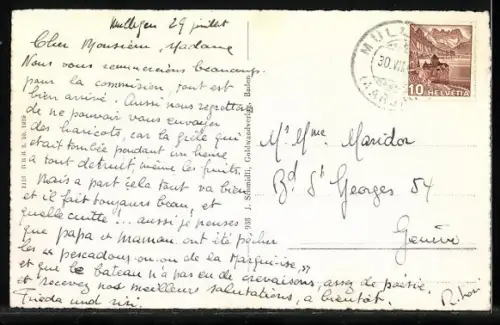 Mulligen 29 juillet
Cher Monsieur, Madame
Nous vous remercions beaucoup
pour la commission, tout est
bien arrivé. Aussi nous regrettons
de ne pouvoir vous envoyer
des haricots, car la grêle qui
était tombée pendant un heure
a tout detruit, même les fruits.
Mais a part cela tout va bien
et il fait toujours beau, et
quelle cuitte!... aussi je penses
que papa et maman ont été pêcher
les "pescadous ou ou de la Marquise,"
et que le bateau n'a pas eu de crevaisons, assez de poésie,
et recevez nos meilleurs salutations, a bientôt.
Frieda und
J. Schmidli, Goldwandverlag, Baden
MULL
30.VII
10 HELVETIA
Mr Mme. Maridor
Bd St Georges 54
Genève